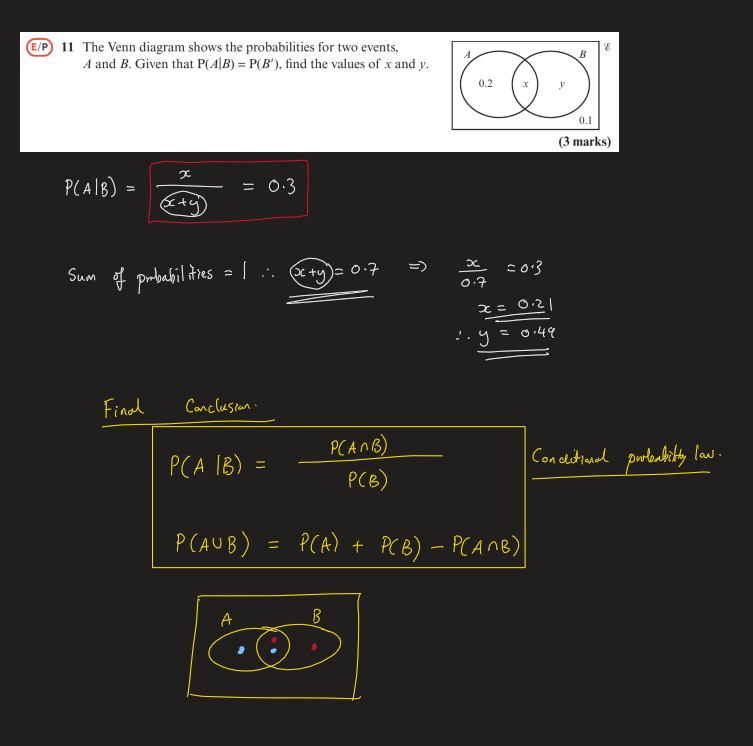 E/P 11 The Venn diagram shows the probabilities for two events,
A and B. Given that P(A|B) = P(B′), find the values of x and y.
A B ℰ
0.2 x y
0.1
(3 marks)
P(A|B) = x/(x+y) = 0.3
Sum of probabilities = 1 ∴ (x+y) = 0.7 ⇒ x/0.7 = 0.3
x = 0.21
∴ y = 0.49
Final Conclusion.
P(A|B) = P(A∩B)/P(B)
Conditional probability law.
P(A∪B) = P(A) + P(B) − P(A∩B)
A B